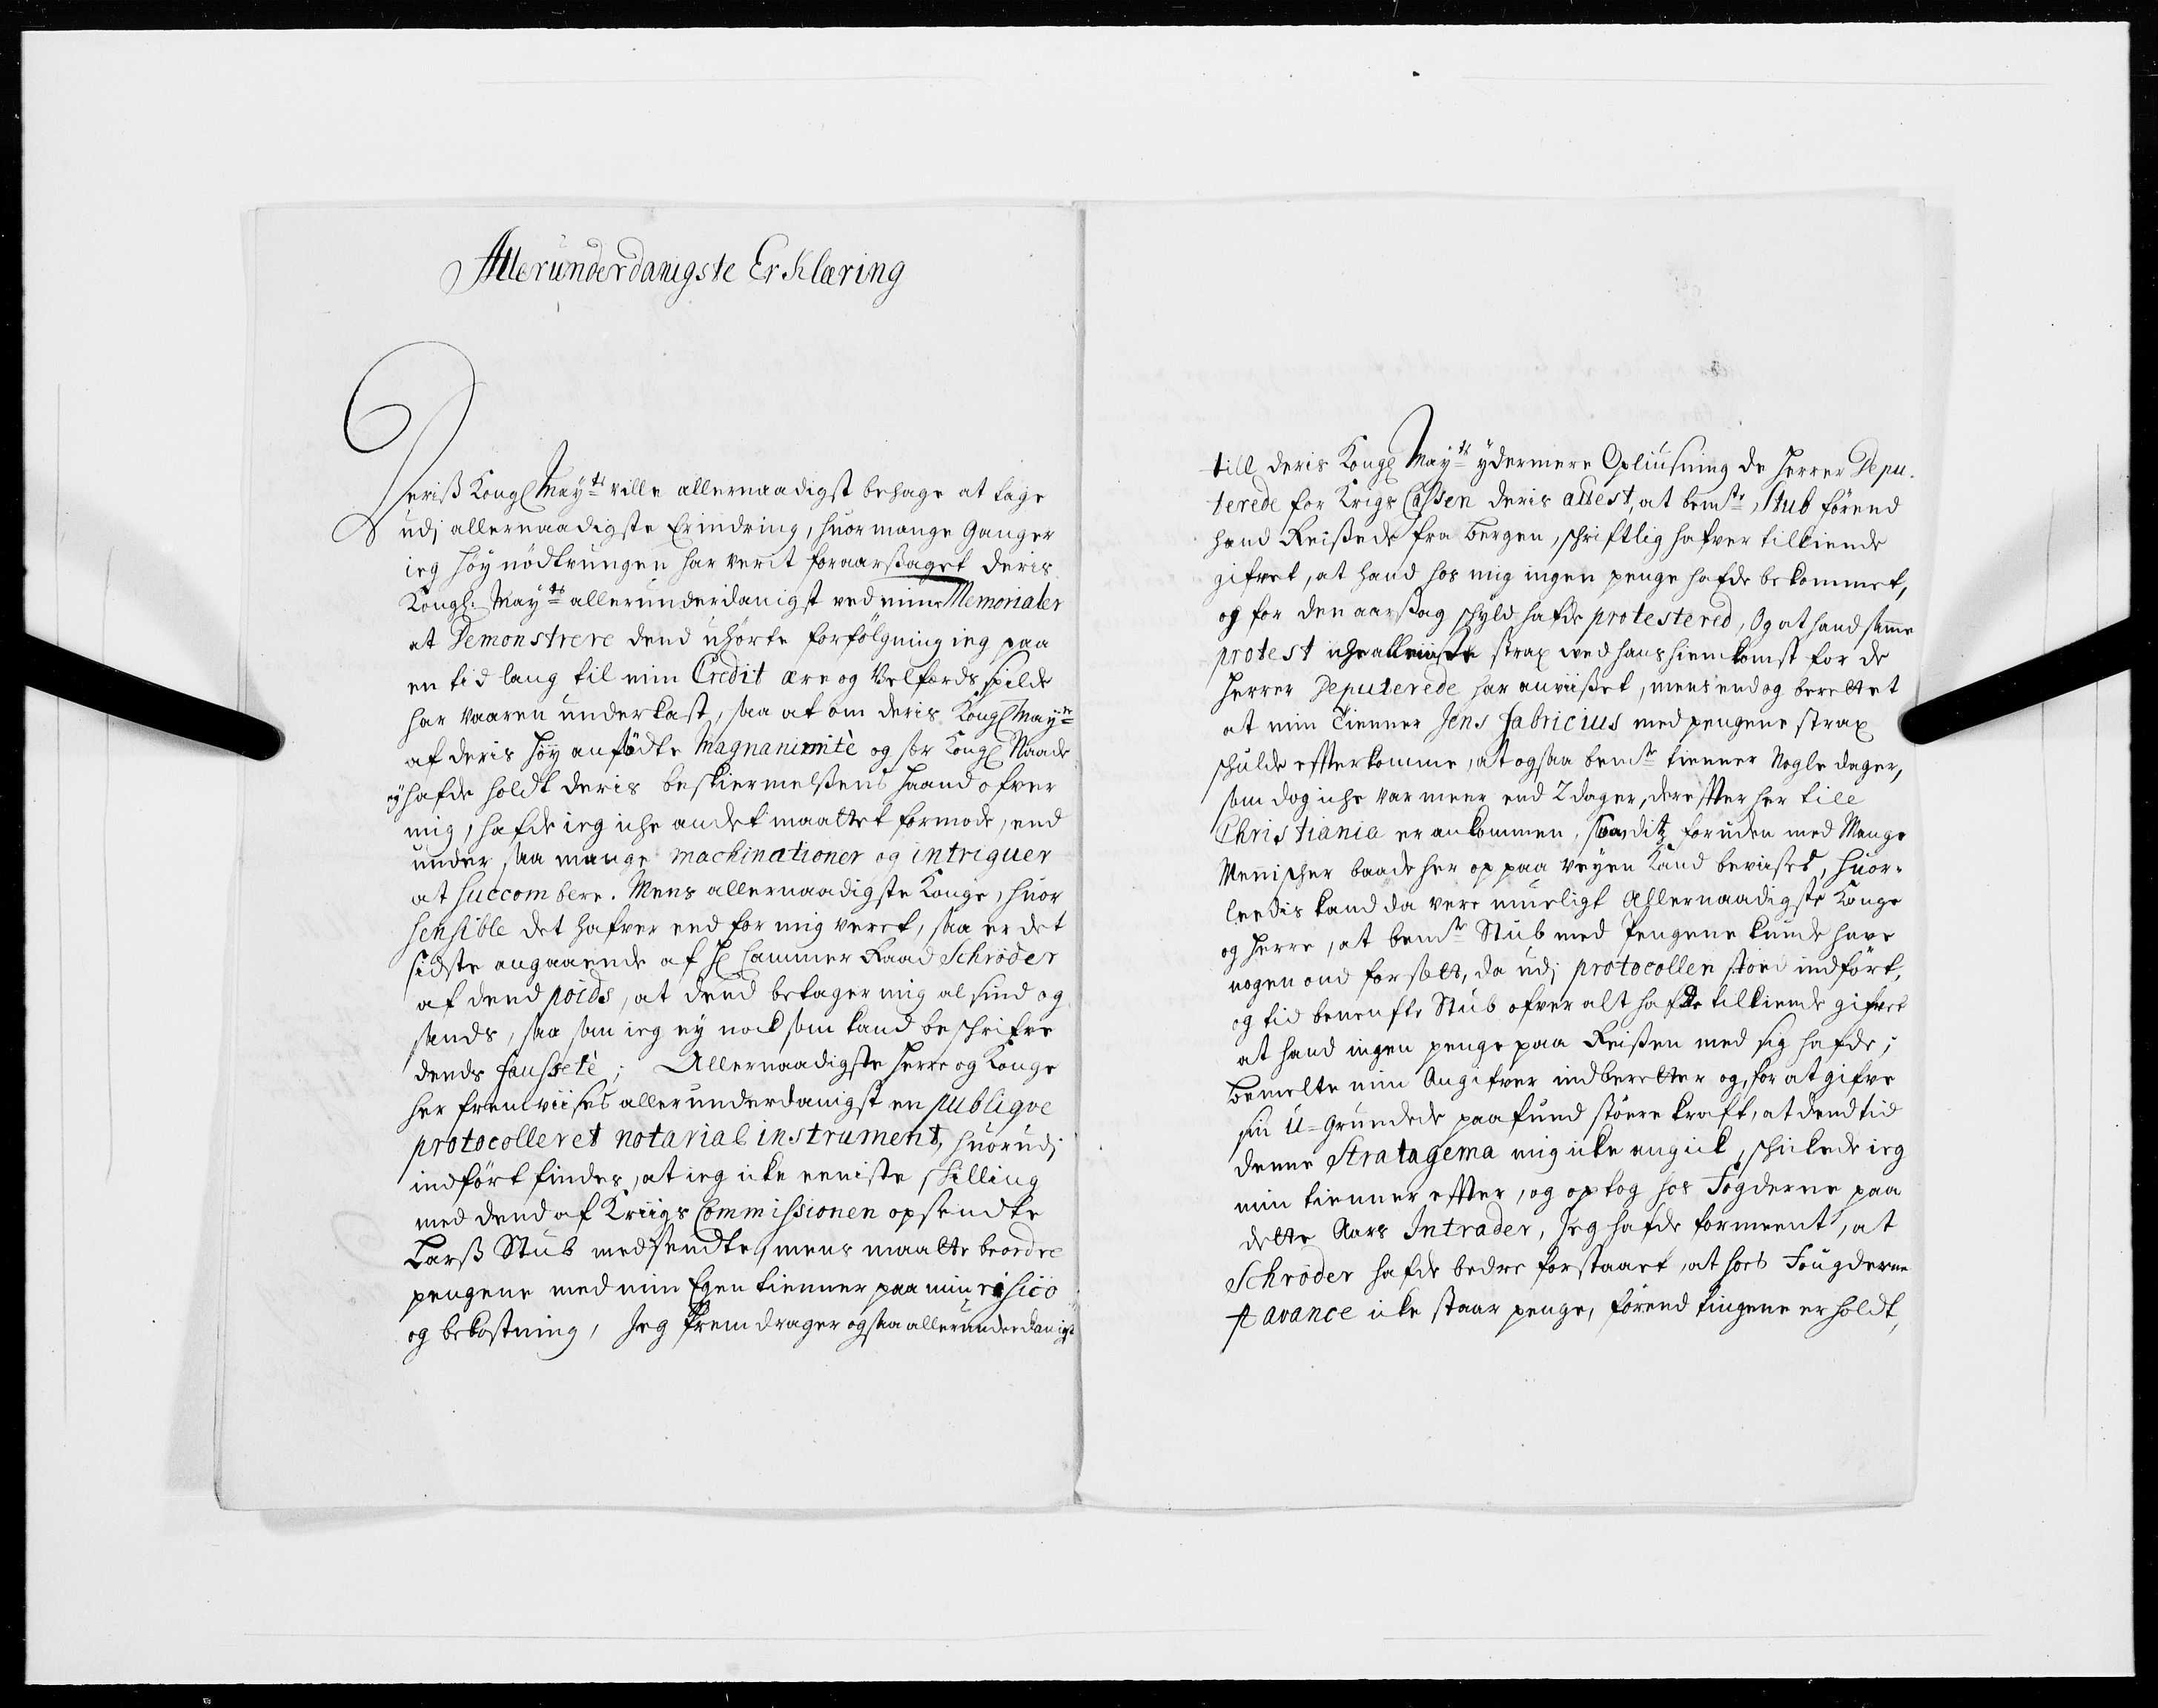 Allerunderdanigste Erklæring
Deriß Kongl May:ts ville allernaadigst behage at tage
udj allernaadigste Erindring, huor mange Ganger
ieg høy nødtrungen har verit foraarßaget deris
Kongl. May:ts allerunderdanigst ved mine Memorialer
at Demonstrere dend uhørte forfølgning ieg paa
en tid lang til min Credit ære og Velferds spilde
har vaaren underkast, saa at om deris Kongl May:tt
af deris høy anfødte Magnanimitè og sær Kongl Naade
ey hafde holdt deris beskiermelßens haand ofver
mig, hafde ieg iche andet maattet formode, end
under saa mange machinationer og intriguer
at succombere. Mens allernaadigste Konge, huor
sensible det hafver end for mig veret, saa er det
sidste angaaende af Hr Cammer Raad Schrøder
af dend poids, at dend betager mig al sind og
sands, saa som ieg ey nocksom kand beschrifve
dends fausseté; Allernaadigste Herre og Konge
her fremviises allerunderdanigst en publiqve
protocolleret notarial instrument, huorudj
indført findes, at ieg icke eeniste skilling
med dend af Kriigs Commissionen opsendte
Larß Stub medsendte, mens maatte beordre
pengene med min Egen tienner paa min risico
og bekostning, Jeg fremdrager ogsaa allerunderdanigst
till deris Kongl May:ts ydermere Opliusning de Herrer Depu-
terede for Krigs Cassen deris attest, at bem:te Stub førend
hand Reißede fra Bergen, schriftlig hafver tilkiende
gifvet, at hand hos mig ingen penge hafde bekommet,
og for den aarsag schyld hafde protestered, Og at hand samme
protest iche alleeniste strax ved hans hiemkomst for de
Herrer Deputerede har anviißet, mens endog berettet
at min Tienner Jens Fabricius med pengene strax
schulde efterkomme, at ogsaa bem:te tienner Nogle dager,
som dog iche var meer end 2 dager, derefter her till
Christiania er ankommen, foruden med Mange
Menischer baade her op paa veyen Kand beviises, huor-
leedis kand da vere mueligt Allernaadigste Konge
og Herre, at bem:te Stub med Pengene kunde have
nogen ond forsett, da udj protocollen stoed indført,
og tid benente Stub ofver alt hafde tilkiende gifvet
at hand ingen penge paa Reißen med sig hafde;
Bemelte min Angifver indberetter og, for at gifve
sin U-grundede paafund større kraft, at dend tid
denne Stratagema mig icke angick, schickede ieg
min tienner efter, og optog hos Fogderne paa
dette Aars Intrader, Jeg hafde formeent, at
Schrøder hafde bedre forstaaet, at hoes Fougderne
à avance icke staar penge, førend tingene er holdt,